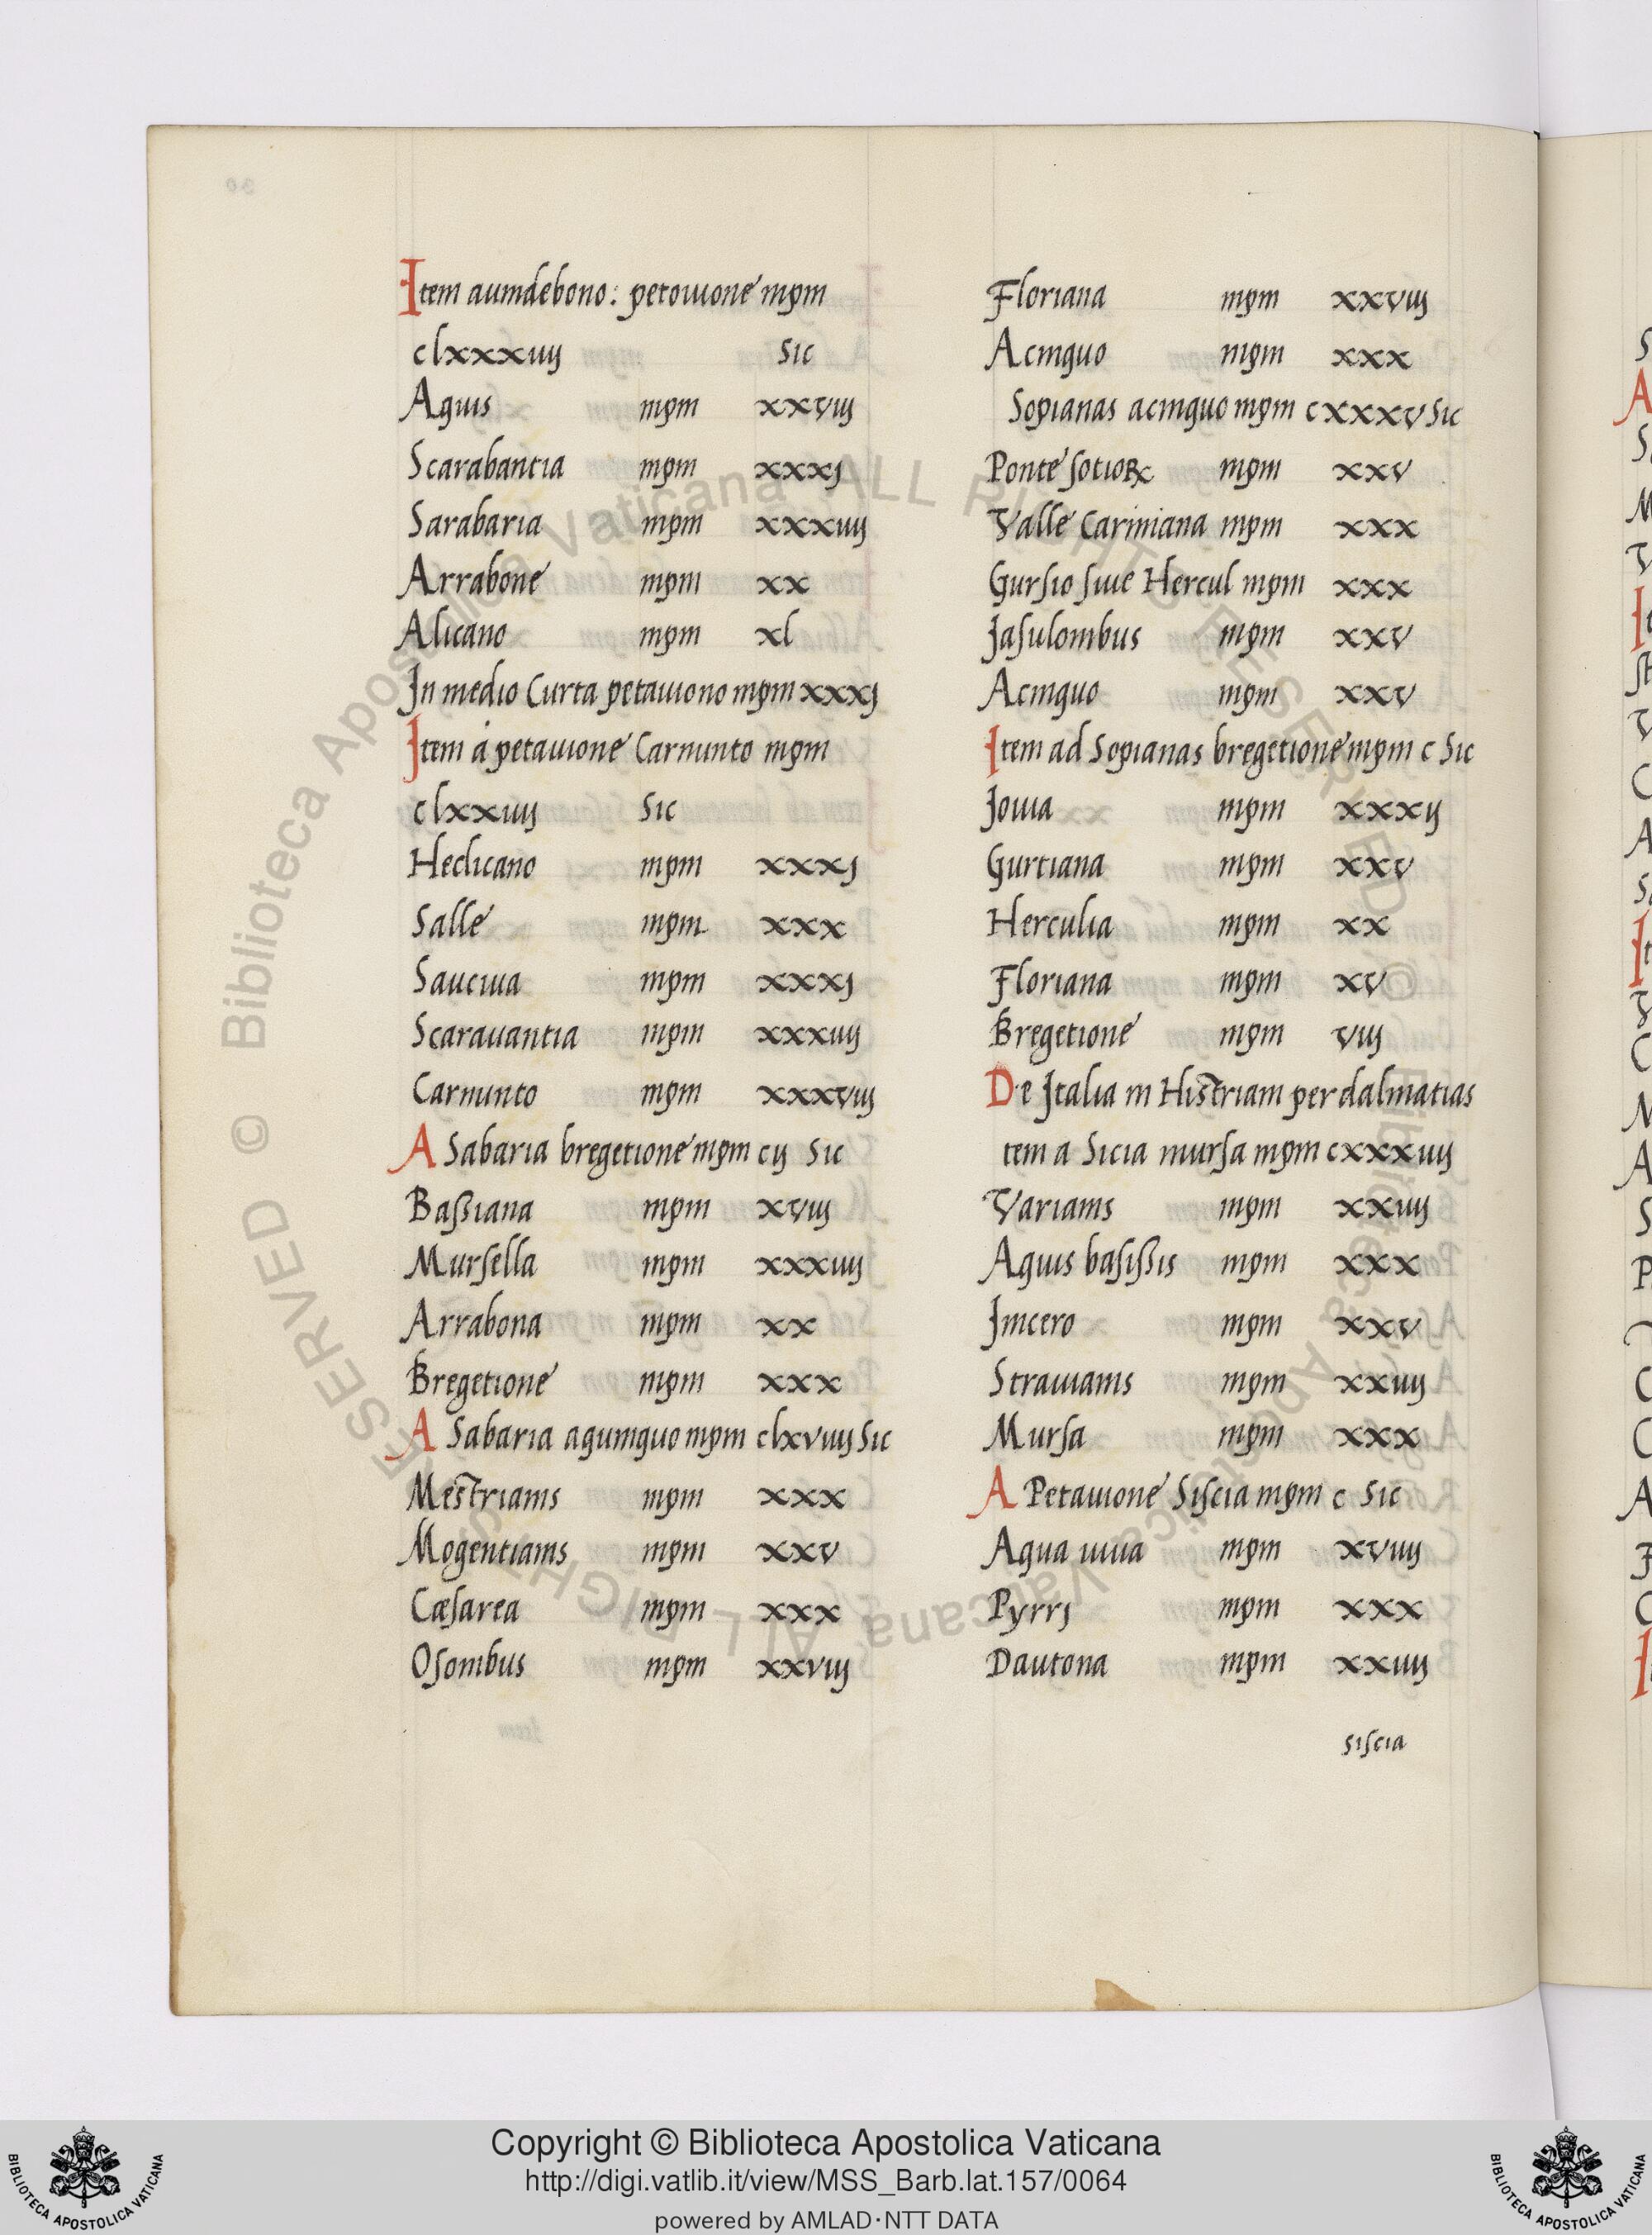 Item auindebono: petouione mpm
clxxxiiij sic
Aquis mpm xxviij
Scarabantia mpm xxxj
Sarabaria mpm xxxiiij
Arrabone mpm xx
Alicano mpm xl
In medio Curta petauiono mpm xxxj
Item á petauione Carnunto mpm
clxxiiij sic
Heclicano mpm xxxj
Salle mpm xxx
Sauciua mpm xxxj
Scarauantia mpm xxxiiij
Carnunto mpm xxxviij
A Sabaria bregetione mpm cij sic
Baßiana mpm xviij
Murſella mpm xxxiiij
Arrabona mpm xx
Bregetione mpm xxx
A Sabaria aquinquo mpm clxviiij sic
Mestrianis mpm xxx
Mogentianis mpm xxv
Cæſarea mpm xxx
Oſonibus mpm xxviij
Floriana mpm xxviij
Acinquo mpm xxx
Sopianas acinquo mpm cxxxv sic
Ponte ſotioꝝ mpm xxv
Valle Cariniana mpm xxx
Gurſio ſiue Hercul mpm xxx
Jaſulonibus mpm xxv
Acinquo mpm xxv
Item ad Sopianas bregetione mpm c sic
Jouia mpm xxxij
Gurtiana mpm xxv
Herculia mpm xx
Floriana mpm xv
Bregetione mpm viij
De Italia in Histriam per dalmatias
tem a Sicia murſa mpm cxxxiiij
Varianis mpm xxiiij
Aquis baſißis mpm xxx
Jncero mpm xxv
Strauianis mpm xxiiij
Murſa mpm xxx
A Petauione Siſcia mpm c sic
Aqua uiua mpm xviiij
Pyrrj mpm xxx
Dautona mpm xxiiij
siſcia
© Biblioteca Apostolica Vaticana ALL RIGHTS RESERVED
© Biblioteca Apostolica Vaticana ALL RIGHTS RESERVED
Copyright © Biblioteca Apostolica Vaticana
http://digi.vatlib.it/view/MSS_Barb.lat.157/0064
powered by AMLAD·NTT DATA
BIBLIOTECA APOSTOLICA VATICANA
BIBLIOTECA APOSTOLICA VATICANA